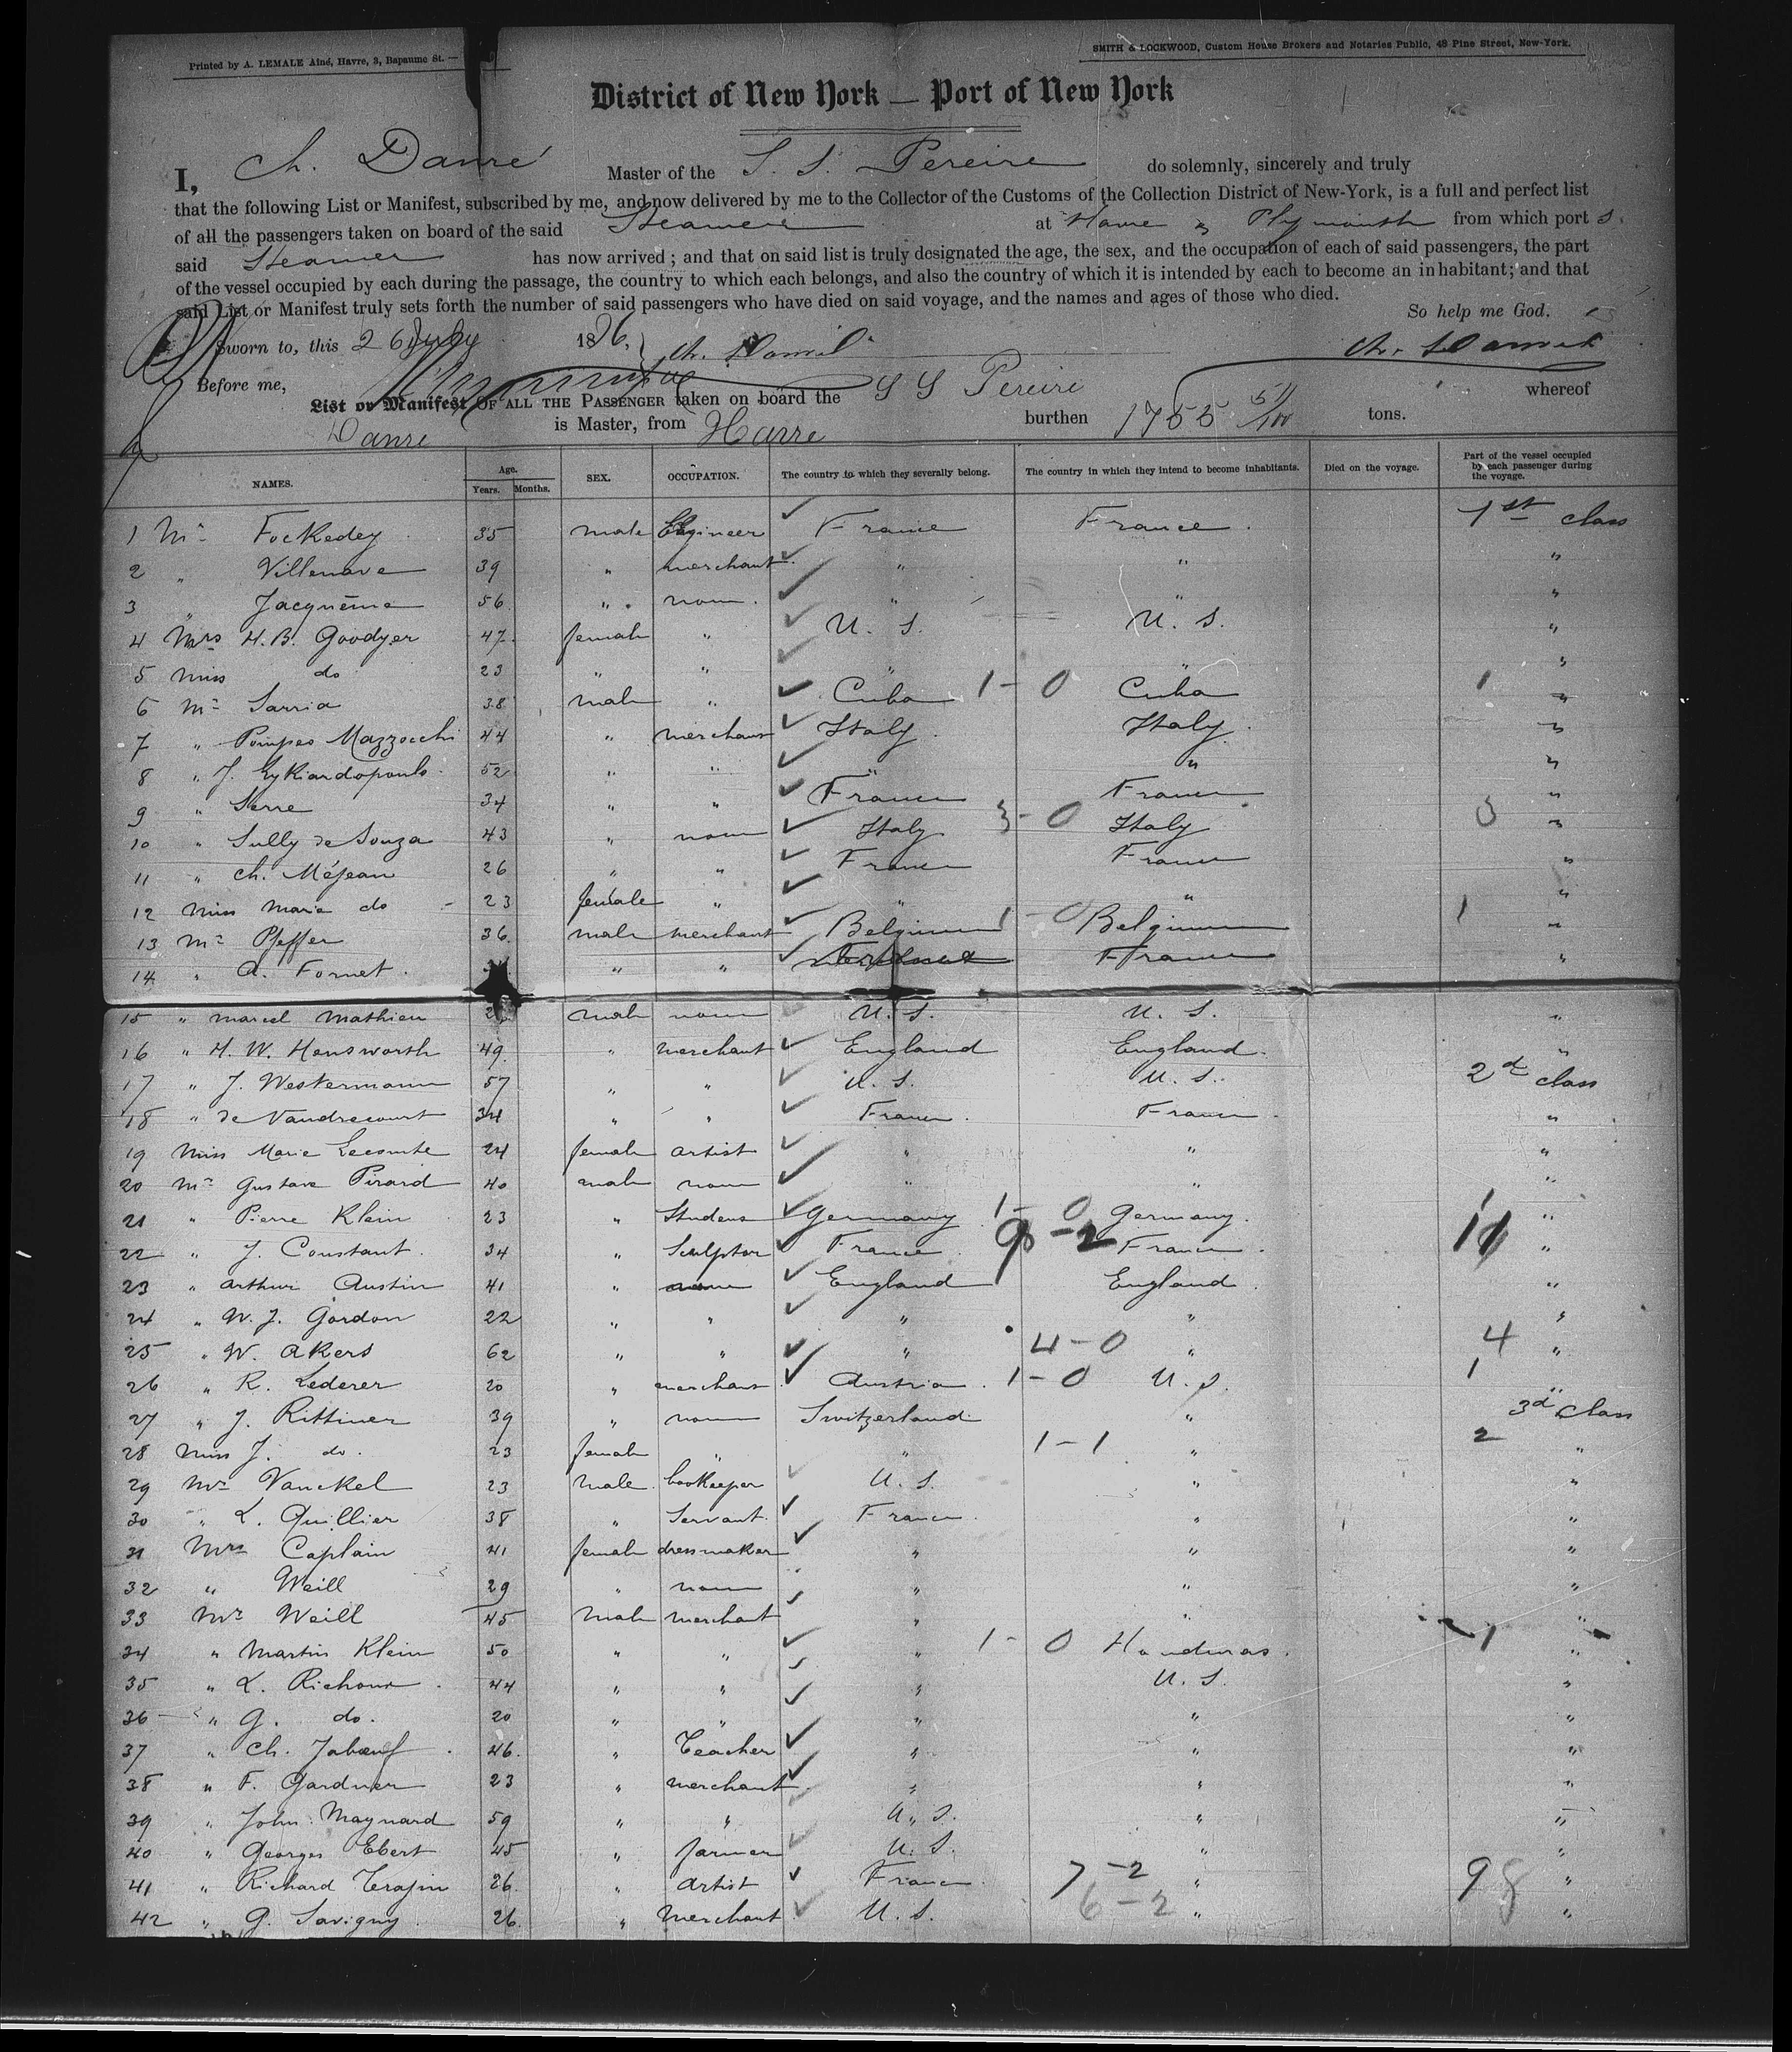 Printed by A. LEMALE Aîné, Havre, 3, Bapaume St. —
SMITH & LOCKWOOD, Custom House Brokers and Notaries Public, 48 Pine Street, New-York.
District of New York — Port of New York
I, Ch. Danré Master of the S. S. Pereire do solemnly, sincerely and truly
that the following List or Manifest, subscribed by me, and now delivered by me to the Collector of the Customs of the Collection District of New-York, is a full and perfect list
of all the passengers taken on board of the said Steamer at Havre & Plymouth from which port s
said Steamer has now arrived ; and that on said list is truly designated the age, the sex, and the occupation of each of said passengers, the part
of the vessel occupied by each during the passage, the country to which each belongs, and also the country of which it is intended by each to become an inhabitant; and that
said List or Manifest truly sets forth the number of said passengers who have died on said voyage, and the names and ages of those who died.
So help me God.
Sworn to, this 26 July 1876, Ch. Danré Ch. Danré
Before me,
List or Manifest OF ALL THE PASSENGER taken on board the S S Pereire whereof
Danre is Master, from Havre burthen 1755 51/100 tons.
NAMES. Age. Years. Months. SEX. OCCUPATION. The country to which they severally belong. The country in which they intend to become inhabitants. Died on the voyage. Part of the vessel occupied by each passenger during the voyage.
1 Mr Fockedey 35 male Engineer France France 1st class
2 " Villenave 39 " merchant " " "
3 " Jacquême 56 " none " " "
4 Mrs H. B. Goodyer 47 female " U. S. U. S. "
5 Miss do 23 " " " " "
6 Mr Sarria 38 male " Cuba 1-0 Cuba 1 "
7 " Pompeo Mazzocchi 44 " merchant Italy Italy "
8 " J. Eykiardopoulo 52 " " " " "
9 " Serre 34 " " France France "
10 " Sully de Souza 43 " none Italy 3-0 Italy 3 "
11 " Ch. Méjean 26 " " France France "
12 Miss Marie do 23 female " " " "
13 Mr Pfeffer 36 male merchant Belgium 1-0 Belgium 1 "
14 " A. Fornet " " France "
15 " Marcel Mathieu male none U. S. U. S. "
16 " H. W. Hensworth 49 " merchant England England "
17 " J. Westermann 57 " " U. S. U. S. 2d class
18 " de Vaudrecourt 34 " " France France "
19 Miss Marie Lecomte 24 female artist " " "
20 Mr Gustave Pirard 40 male none " " "
21 " Pierre Klein 23 " Student Germany 1-0 Germany 1 "
22 " J. Constant 34 " Sculptor France 9-2 France 11 "
23 " Arthur Austin 41 " none England England "
24 " W. J. Gordon 22 " " " " "
25 " W. Akers 62 " " " 4-0 " 4 "
26 " R. Lederer 20 " merchant Austria 1-0 U. S. 1
27 " J. Rittiner 39 " none Switzerland " 3d class
28 Miss J. do 23 female " " 1-1 " 2 "
29 Mr Vanckel 23 male bookeeper U. S. " "
30 " L. Quillier 38 " Servant France " "
31 Mrs Caplain 41 female dressmaker " " "
32 " Weill 29 " none " " "
33 Mr Weill 45 male merchant " " "
34 " Martin Klein 50 " " " 1-0 Honduras 1 "
35 " L. Richour 44 " " " U. S. "
36 " G. do. 20 " " " " "
37 " Ch. Jabœuf 46 " Teacher " " "
38 " F. Gardner 23 " merchant " " "
39 " John Maynard 59 " " U. S. " "
40 " Georges Ebert 45 " farmer U. S. " "
41 " Richard Terajin 26 " artist France 7-2 " 9 "
42 " G. Savigny 26 " merchant U. S. 6-2 " 8 "